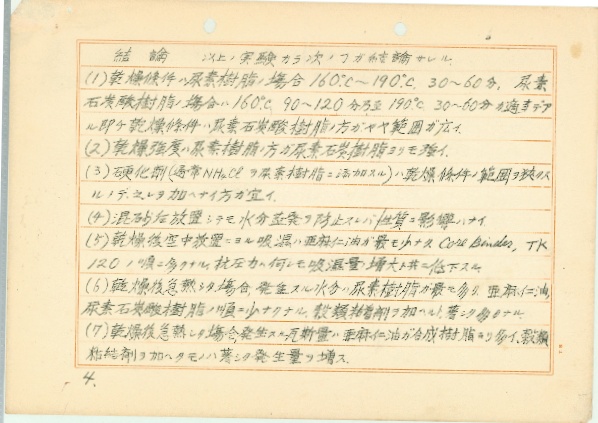 結論 以上ノ実験カラ次ノコトガ結論サレル.
(1) 乾燥條件ハ尿素樹脂ノ場合 160℃〜190℃, 30〜60分, 尿素
石炭酸樹脂ノ場合ハ 160℃, 90〜120分乃至 190℃, 30〜60分ガ適当デア
ル即チ乾燥條件ハ尿素石炭酸樹脂ノ方ガヤヤ範囲ガ広イ.
(2) 乾燥強度ハ尿素樹脂ノ方ガ尿素石炭樹脂ヨリモ強イ.
(3) 硬化剤(通常NH₄Clヲ尿素樹脂ニ添加スル)ハ乾燥條件ノ範囲ヲ狭クス
ルノデ之レヲ加ヘナイ方ガ宜イ.
(4) 混砂后放置シテモ水分蒸発ヲ防止スレバ性質ニ影響ハナイ
(5) 乾燥後空中放置ニヨル吸濕ハ亜麻仁油ガ最モ小ナク Core Binder, TK
120ノ順ニ多クナル, 抗圧力ハ何レモ吸濕量ノ増大ト共ニ低下スル
(6) 乾燥後急熱シタ場合, 発生スル水分ハ尿素樹脂ガ最モ多ク, 亜麻仁油,
尿素石炭酸樹脂ノ順ニ小ナクナル, 穀類粘結剤ヲ加ヘルト著シク多クナル.
(7) 乾燥後急熱シタ場合発生スル瓦斯量ハ亜麻仁油ガ合成樹脂ヨリ多イ, 穀類
粘結剤ヲ加ヘタモノハ著シク発生量ヲ増ス.
4.